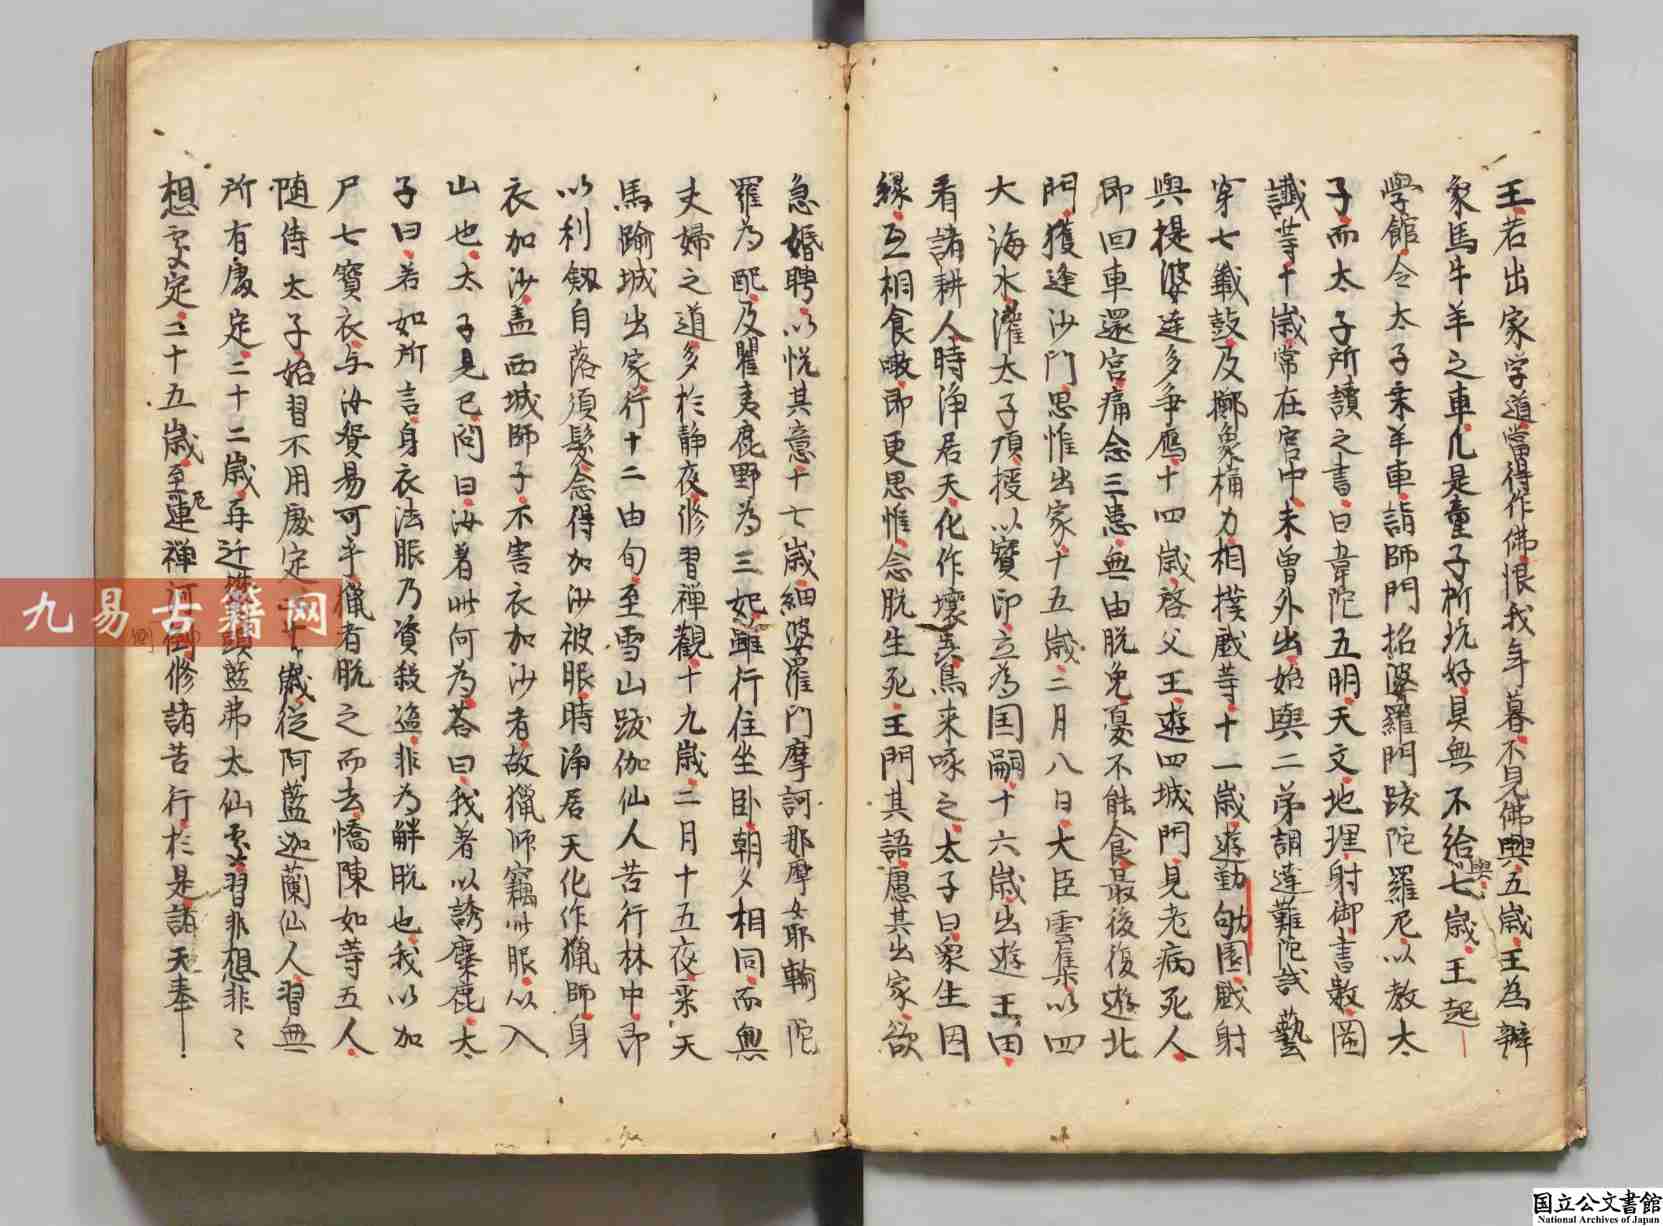 王若出家学道當得作佛恨我年暮不見佛興五歳王為辦
象馬牛羊之車凢是童子所玩好具無不給與七歳王起
學館令太子乗羊車詣師門招婆羅門跋陀羅尼以教太
子而太子所讀之書曰韋陀五明天文地理射御書数図
讖等十歳常在宮中未曽外出始與二弟調達難陀試藝
穿七鐡鼓及擲象桶力相撲戯等十一歳遊勤劬園戯射
與提婆達多争鴈十四歳啓父王遊四城門見老病死人
即回車還宮痛念三患無由脱免憂不能食最後復遊北
門獲逢沙門思惟出家十五歳二月八日大臣雲集以四
大海水灌太子頂授以寳印立為国嗣十六歳出遊王田
看諸耕人時浄居天化作壌虫鳥来啄之太子曰衆生因
縁互相食噉即更思惟念脱生死王門其語慮其出家欲
急婚聘以悦其意十七歳細婆羅門摩訶那摩女耶輸陀
羅為配及瞿夷鹿野為三妃雖行住坐卧朝夕相同而無
丈婦之道多於静夜修習禅觀十九歳二月十五夜乗天
馬踰城出家行十二由旬至雪山跋伽仙人苦行林中即
以利劔自落須髮念得加沙被服時浄居天化作獵師身
衣加沙盖西域師子不害衣加沙者故獵師竊此服以入
山也太子見已問曰汝著此何為荅曰我著以誘麋鹿太
子曰若如所言身衣法服乃資殺盗非為觧脱也我以加
尸七寳衣与汝貿易可乎獵者脱之而去憍陳如等五人
随侍太子始習不用處定歳従阿藍迦蘭仙人習無
所有處定二十二歳再近頭藍弗太仙處習非想非〻
想處定二十五歳至尼連禅河側修諸苦行於是諸天奉
九易古籍网
国立公文書館
National Archives of Japan